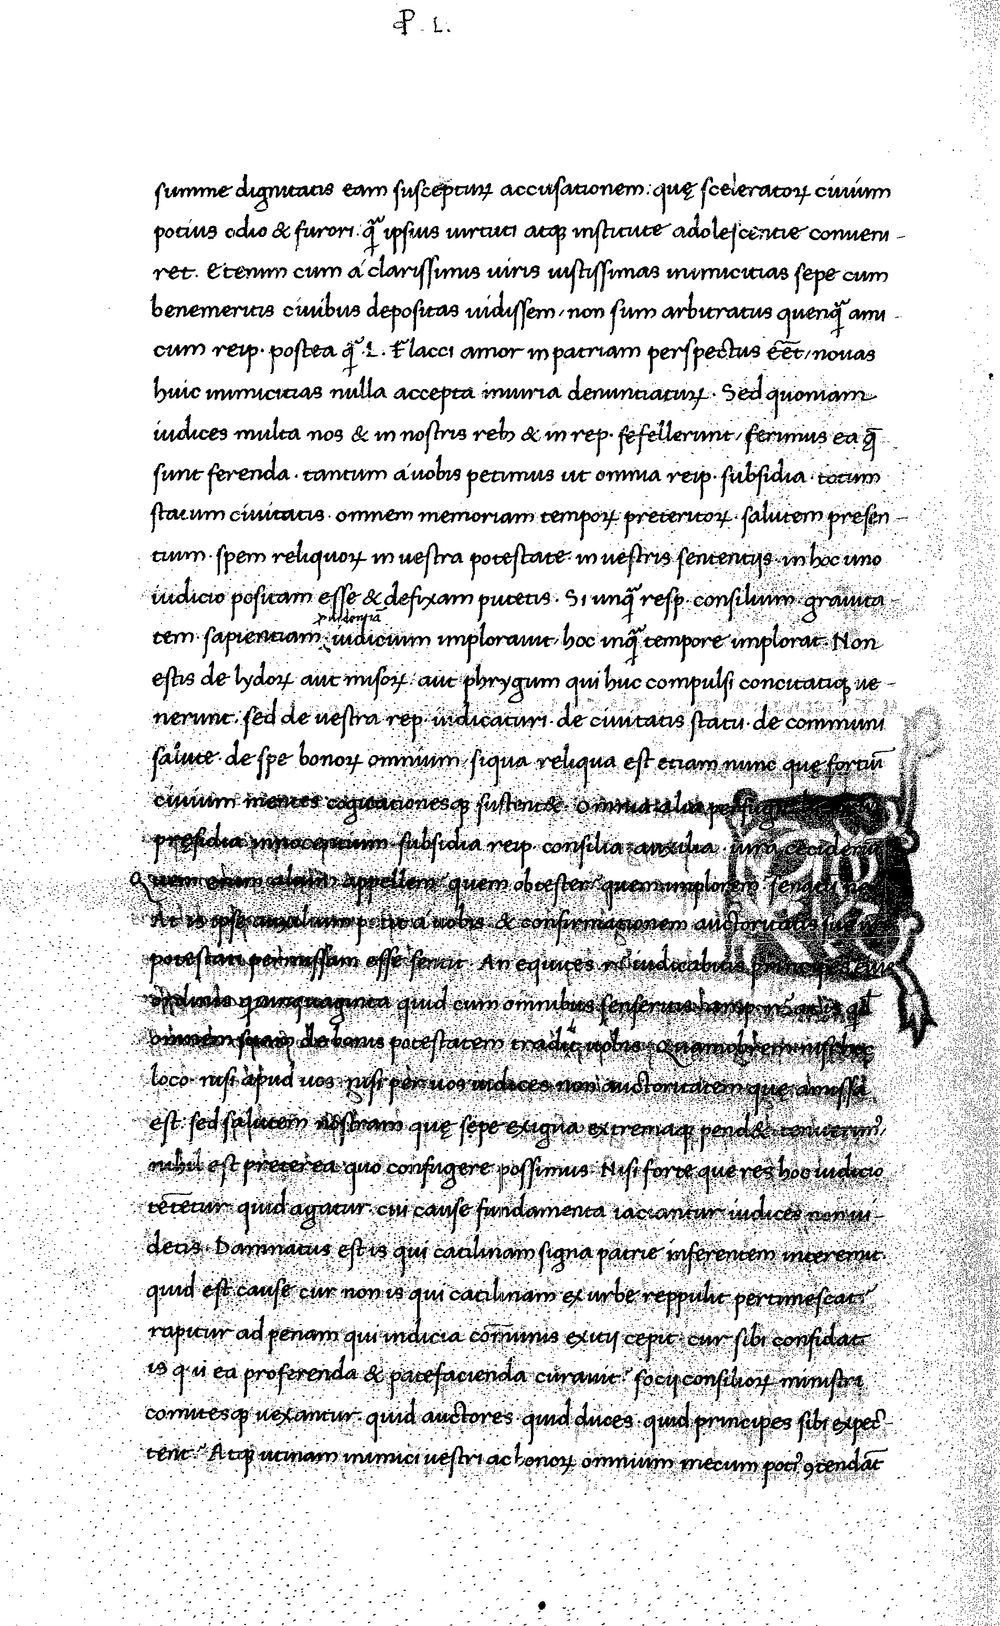 P. L.
summe dignitatis eam suscepturꝝ accusationem: quę sceleratorꝝ ciuium
potius odio & furori. q̄ ipsius uirtuti atqꝫ institute adolescentie conueni-
ret. Etenim cum a clarissimis uiris iustissimas inimicitias sepe cum
benemeritis ciuibus depositas uidissem, non sum arbitratus quenq̄ ami-
cum reip. postea q̄ .L. Flacci amor in patriam perspectus eēt, nouas
huic inimicitias nulla accepta iniuria denuntiaturꝝ. Sed quoniam
iudices multa nos & in nostris rebꝫ & in rep. fefellerunt, ferimus ea q̄
sunt ferenda. tantum a uobis petimus ut omnia reip. subsidia. totum
statum ciuitatis. omnem memoriam temporꝝ preteritorꝝ. salutem presen-
tium. spem reliquorꝝ in uestra potestate. in uestris sententijs. in hoc uno
iudicio positam esse & defixam putetis. Si unq̄ resp. consilium grauita-
tem sapientiam prudentiā iudicium implorauit. hoc inq̄ tempore implorat. Non
estis de lydorꝝ aut misorꝝ. aut phrygum qui huc compulsi concitatiqꝫ ue-
nerunt. sed de uestra rep. iudicaturi. de ciuitatis statu. de communi
salute. de spe bonorꝝ omnium, siqua reliqua est etiam nunc quę fortiū
ciuium mentes cogitationesqꝫ sustent&. omnia alia
pręsidia innocentium. subsidia reip. consilia. auxilia. iura ceciderūt
Quem enim alium appellem quem obtester quem implorem senatū
At is ipse auxilium petit a uobis & confirmationem auctoritatis sue
potestati permissam esse sentit. An equites iudicabitis principes
ordinis quinquaginta quid cum omnibus senseritis
omnem suam de bonis potestatem tradit uobis. Quamobrem nisi hoc
loco. nisi apud uos. nisi per uos iudices non auctoritatem que amissa
est. sed salutem nostram quę sepe exigua extremaqꝫ pend& tenuerim9,
nihil est preterea quo confugere possimus. Nisi forte que res hoc iudicio
tētetur quid agatur. cui cause fundamenta iaciantur iudices non ui-
detis. Damnatus est is qui catilinam signa patrie inferentem interemit.
quid est cause cur non is qui catilinam ex urbe reppulit pertimescat?
rapitur ad penam qui indicia cōmunis exitij cepit. cur sibi confidat
is qui ea proferenda & patefacienda curauit? socij consiliorꝝ ministri
comitesqꝫ uexantur. quid auctores. quid duces. quid principes sibi expec-
tent? Atqꝫ utinam inimici uestri ac bonorꝝ omnium mecum poti9 ꝯtendāt